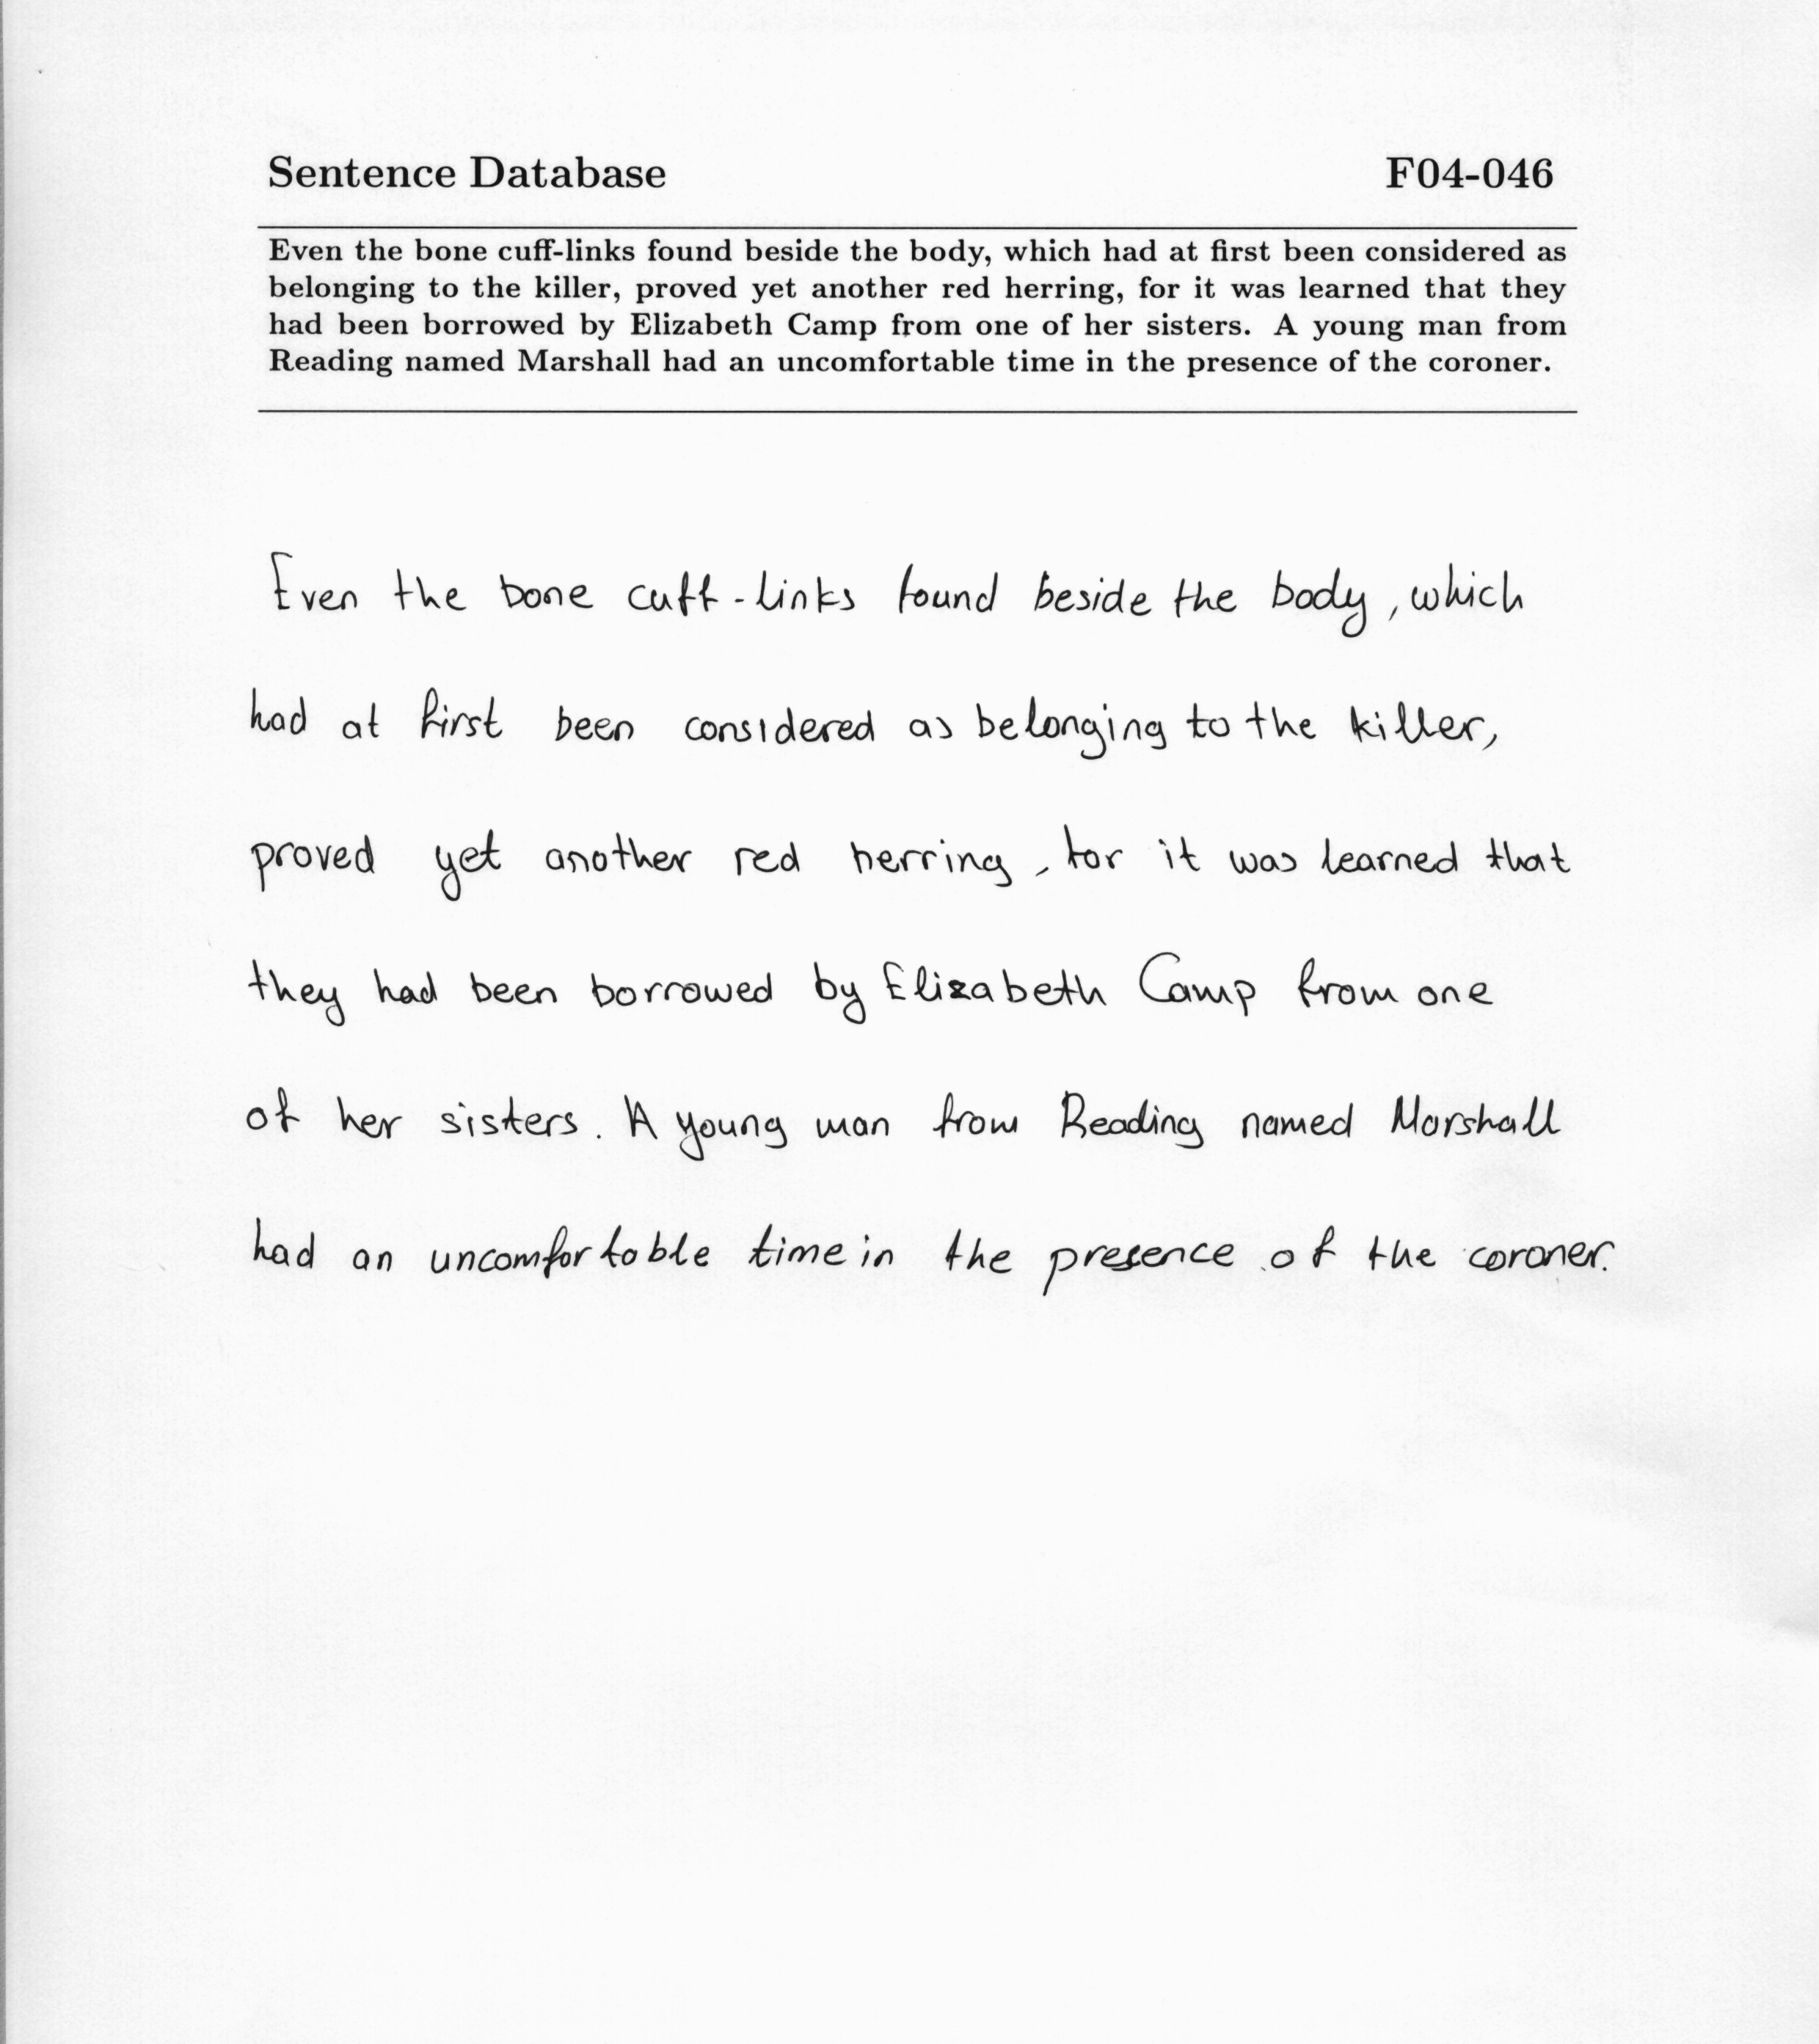 Sentence Database F04-046
Even the bone cuff-links found beside the body, which had at first been considered as
belonging to the killer, proved yet another red herring, for it was learned that they
had been borrowed by Elizabeth Camp from one of her sisters. A young man from
Reading named Marshall had an uncomfortable time in the presence of the coroner.
Even the bone cuff-links found beside the body, which
had at first been considered as belonging to the killer,
proved yet another red herring, for it was learned that
they had been borrowed by Elizabeth Camp from one
of her sisters. A young man from Reading named Marshall
had an uncomfortable time in the presence of the coroner.